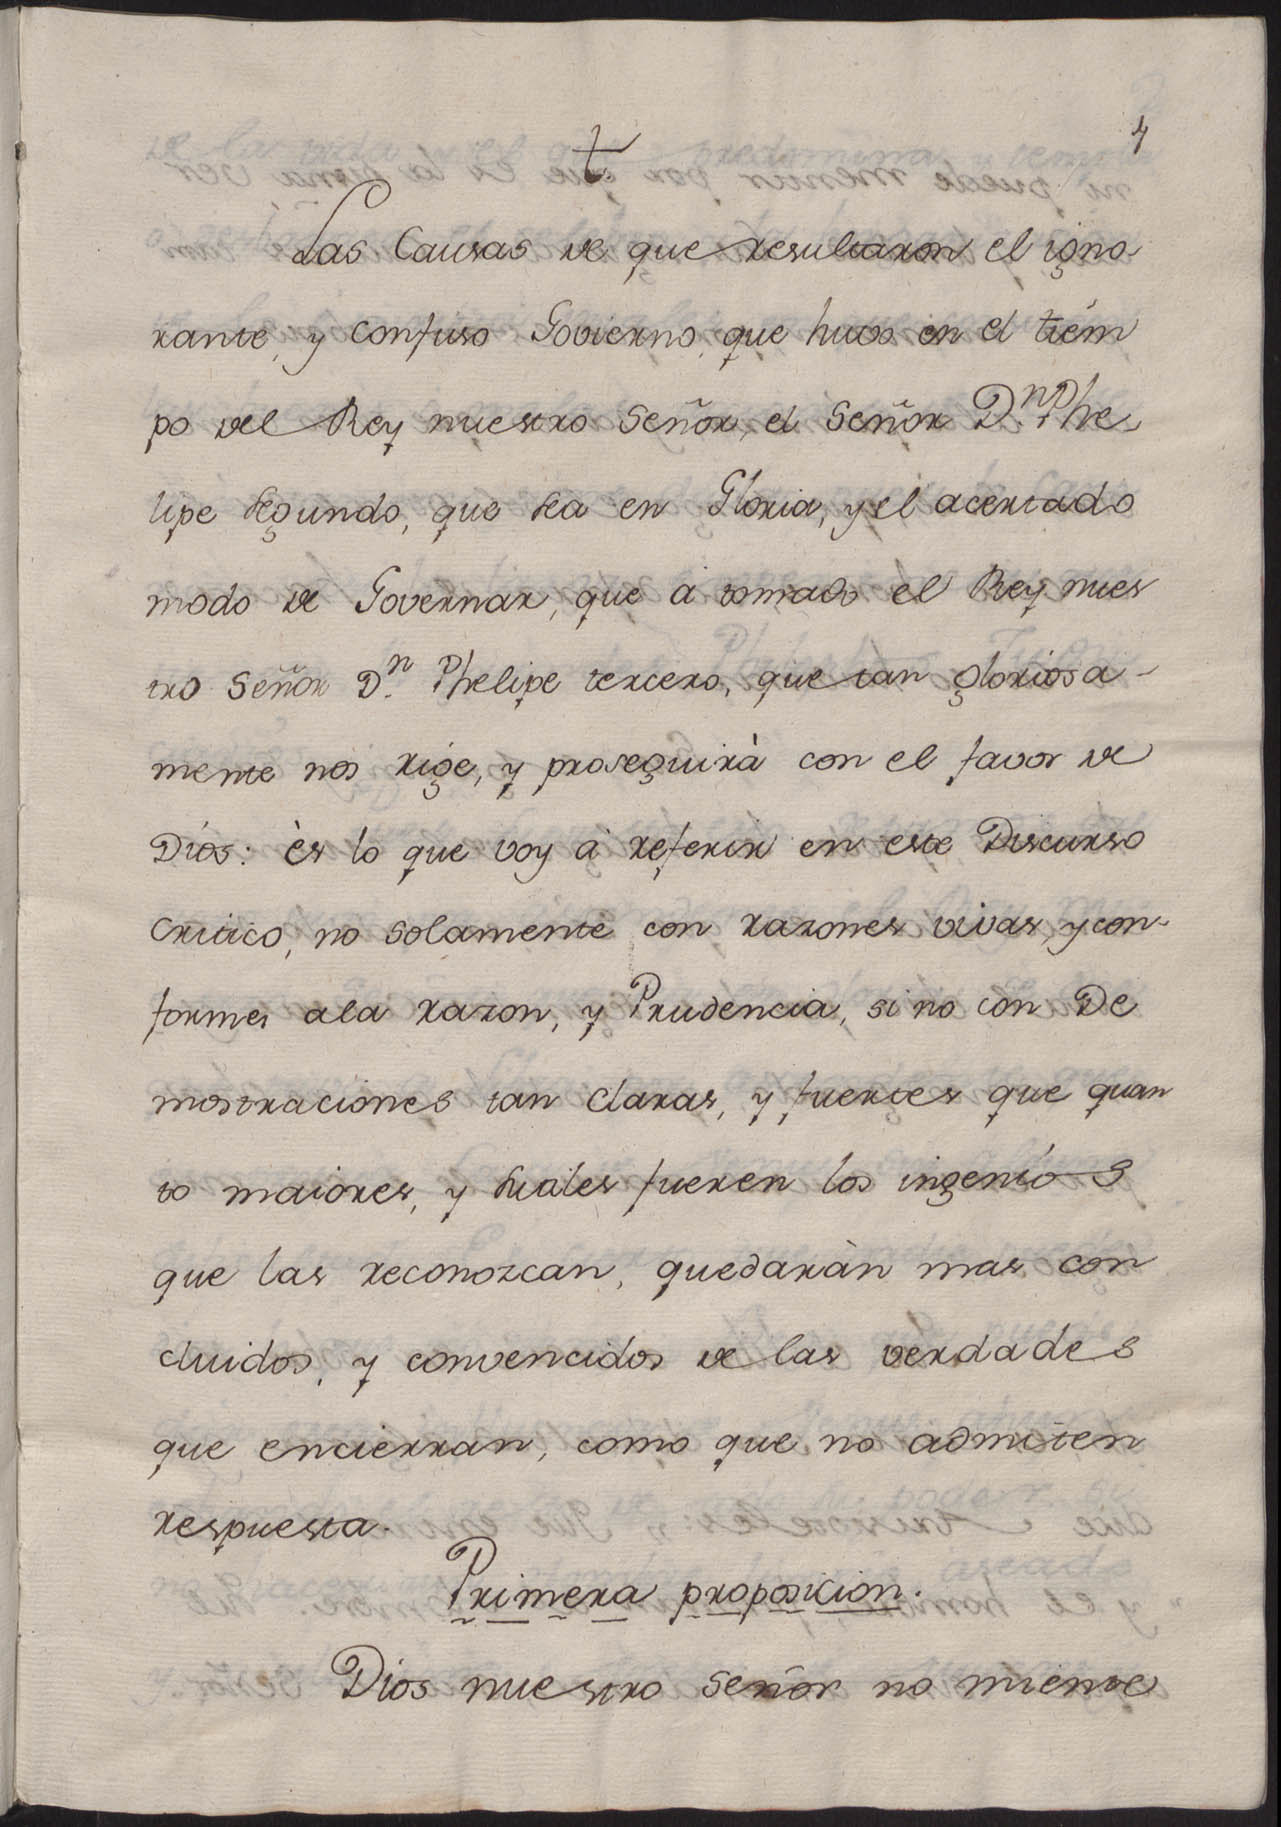 4
Las Causas de que resultaron el igno-
rante, y confuso Govierno, que huvo en el tiém
po del Rey nuestro Señor, el Señor D.ⁿ Phe-
lipe Segundo, que sea en Gloria, y el acertado
modo de Governar, que á tomado el Rey nues
tro Señor D.ⁿ Phelipe tercero, que tan gloriosa-
mente nos rige, y proseguirà con el favor de
Dios: ès lo que voy á referir en este Discurso
Critico, no solamente con razones vivas, y con-
formes ala razon, y Prudencia, si no con De
mostraciones tan claras, y fuertes que quan
to maiores, y tales fueren los ingeniós
que las reconozcan, quedaràn mas con
cluidos, y convencidos de las verdades
que encierran, como que no admiten
respuesta.
Primera proposicion.
Dios nuestro Señor no miente